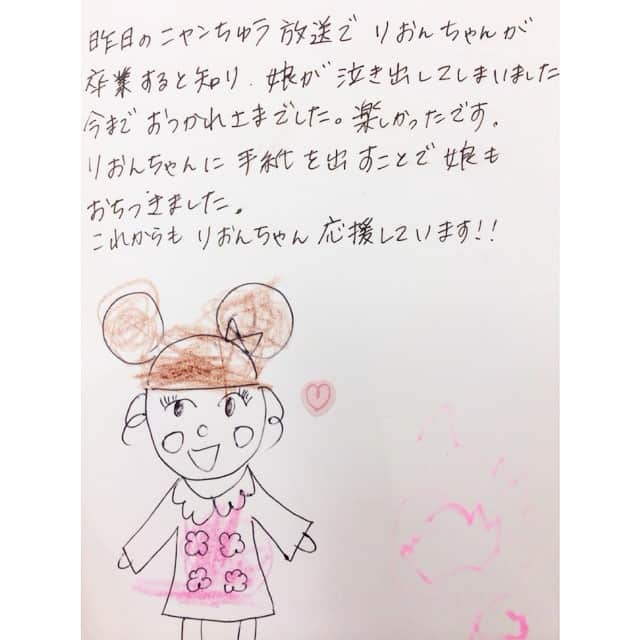 昨日のニャンちゅう放送で りおんちゃんが
卒業すると知り、娘が泣き出してしまいました
今まで おつかれさまでした。楽しかったです。
りおんちゃんに 手紙を出すことで 娘も
おちつきました。
これからも りおんちゃん 応援しています!!